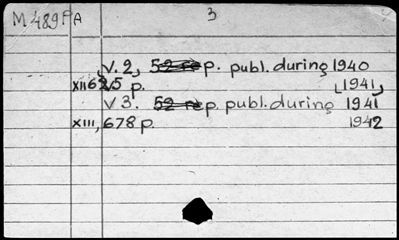 M.489PA 3
v. 2, 52 p. publ. during 1940
XII 625 p. [1941]
v 3. 52 p. publ. during 1941
XIII, 678 p. 1942